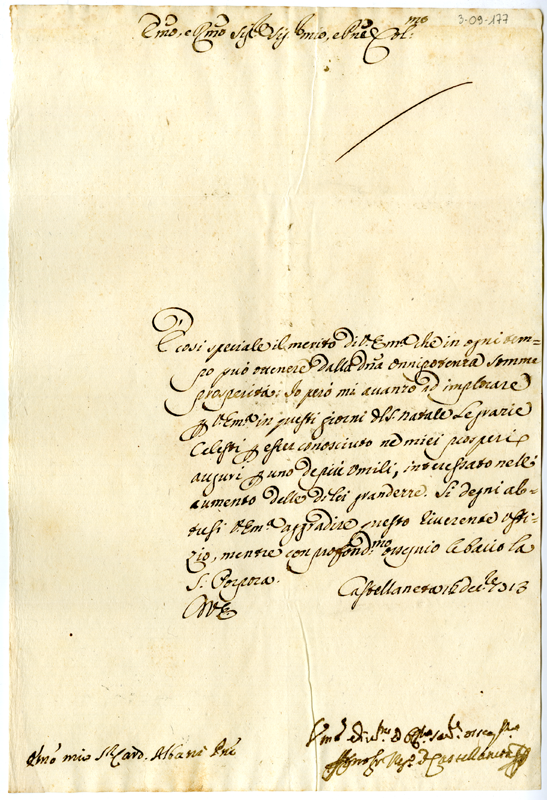 3-09-177
Emo, e Rmo Sigre Sig mio, e Pne Colmo
È cosi speciale il merito di V. Emza che in ogni tem=
po può ottenere dalla dna Onnipotenza Somme
prosperità: Io però mi avanzo ad implorare
p V. Emza in questi giorni del S. Natale le grazie
Celesti p esser conosciuto ne miei prosperi
auguri p uno de più Umili, interessato nell'
aumento delle di lei grandezze. Si degni al=
tresi V. Emza aggradire questo riverente Uffi=
zio, mentre con profondmo ossequio le bacio la
S. Porpora.
Castellaneta 16 Decbre 1713
DVE
Emo mio Sr Card. Albani
di Castellaneta